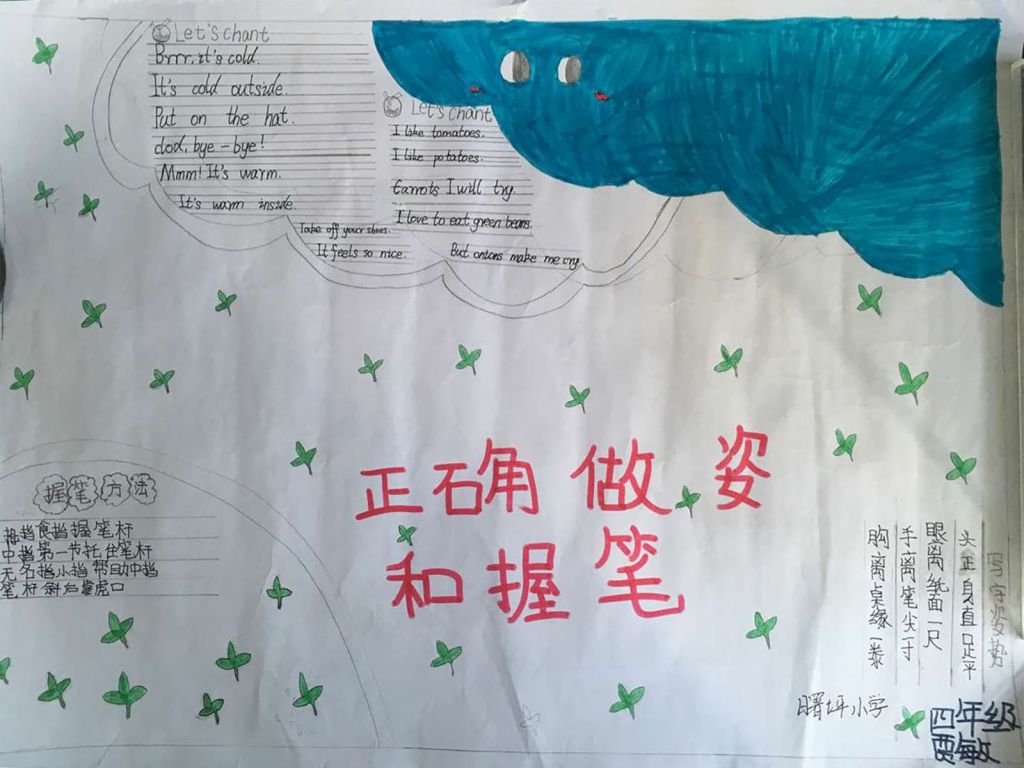 Let's chant
Brrr, it's cold.
It's cold outside.
Put on the hat.
dod, bye-bye!
Mmm! It's warm.
It's warm inside.
Take off your shoes.
It feels so nice.
Let's chant
I like tomatoes.
I like potatoes.
Carrots I will try.
I love to eat green beans
But onions make me cry.
正确做姿
和握笔
握笔方法
拇指食指握笔杆
中指第一节托住笔杆
无名指小指帮助中指
笔杆斜后靠虎口
写字姿势
头正身直足平
眼离纸面一尺
手离笔尖一寸
胸离桌缘一拳
曙坪小学
四年级
贾敏